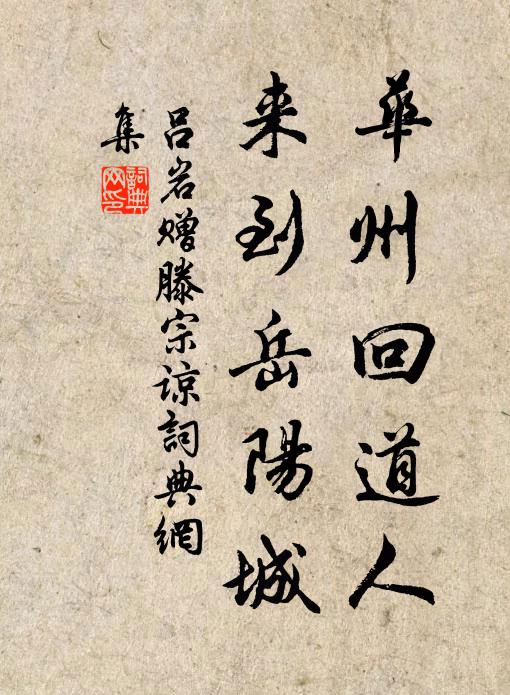 華州回道人
来到岳陽城
吕岩贈滕宗諒詞典網
集
詞典
网印